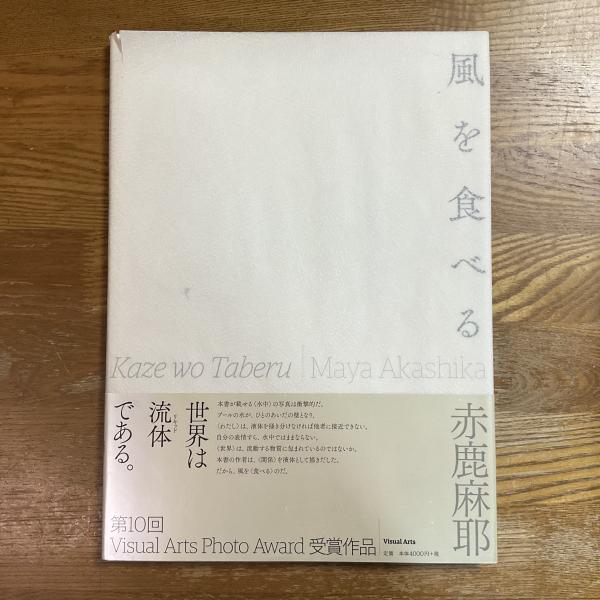 風を食べる
Kaze wo Taberu | Maya Akashika
赤鹿麻耶
世界は
流体
リキッド
である。
本書が載せる〈水中〉の写真は衝撃的だ。
プールの水が、ひとのあいだの壁となり、
〈わたし〉は、液体を掻き分けなければ他者に接近できない。
自分の表情すら、水中ではままならない。
〈世界〉は、流動する物質に包まれているのではないか。
本書の作者は、〈関係〉を液体として描きだした。
だから、風を〈食べる〉のだ。
第10回
Visual Arts Photo Award 受賞作品
Visual Arts
定価 本体4000円+税